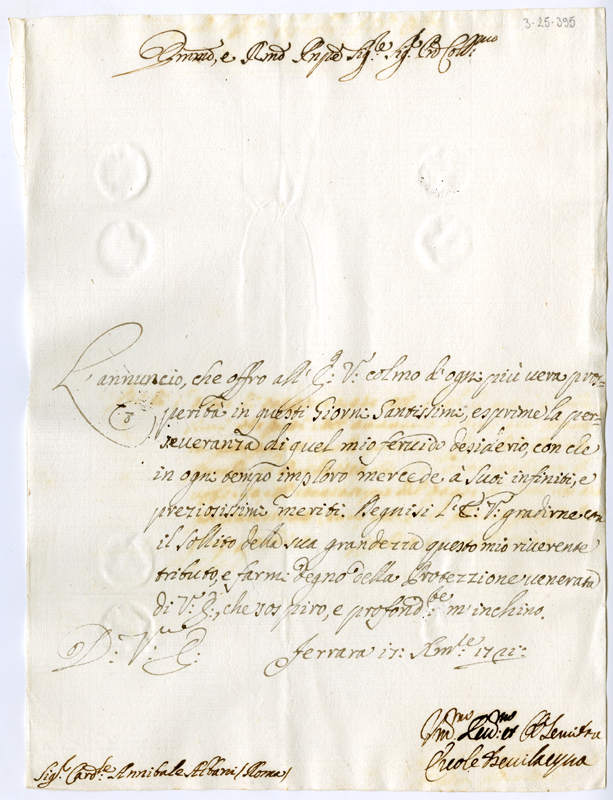 3-25-395
Emmo, e Rmo Prīpe Sig.re Sig.r Prō Coll.mo
L'annuncio, che offro all' E: V: colmo d'ogni più vera pros-
perità in questi Giorni Santissimi, esprime la per-
severanza di quel mio fervido desiderio, con che
in ogni tempo imploro mercede à Suoi infiniti, e
preziosissimi meriti. Degnisi l' E: V: gradirne con
il sollito della sua grandezza questo mio riverente
tributo, e farmi degno della Protezzione venerata
di V: E:, che sospiro, e profond.be m'inchino.
D: V: E: Ferrara 17: Xmbre
Sig.r Card.le Annibale Albani (Roma)
Ercole Bevilacqua